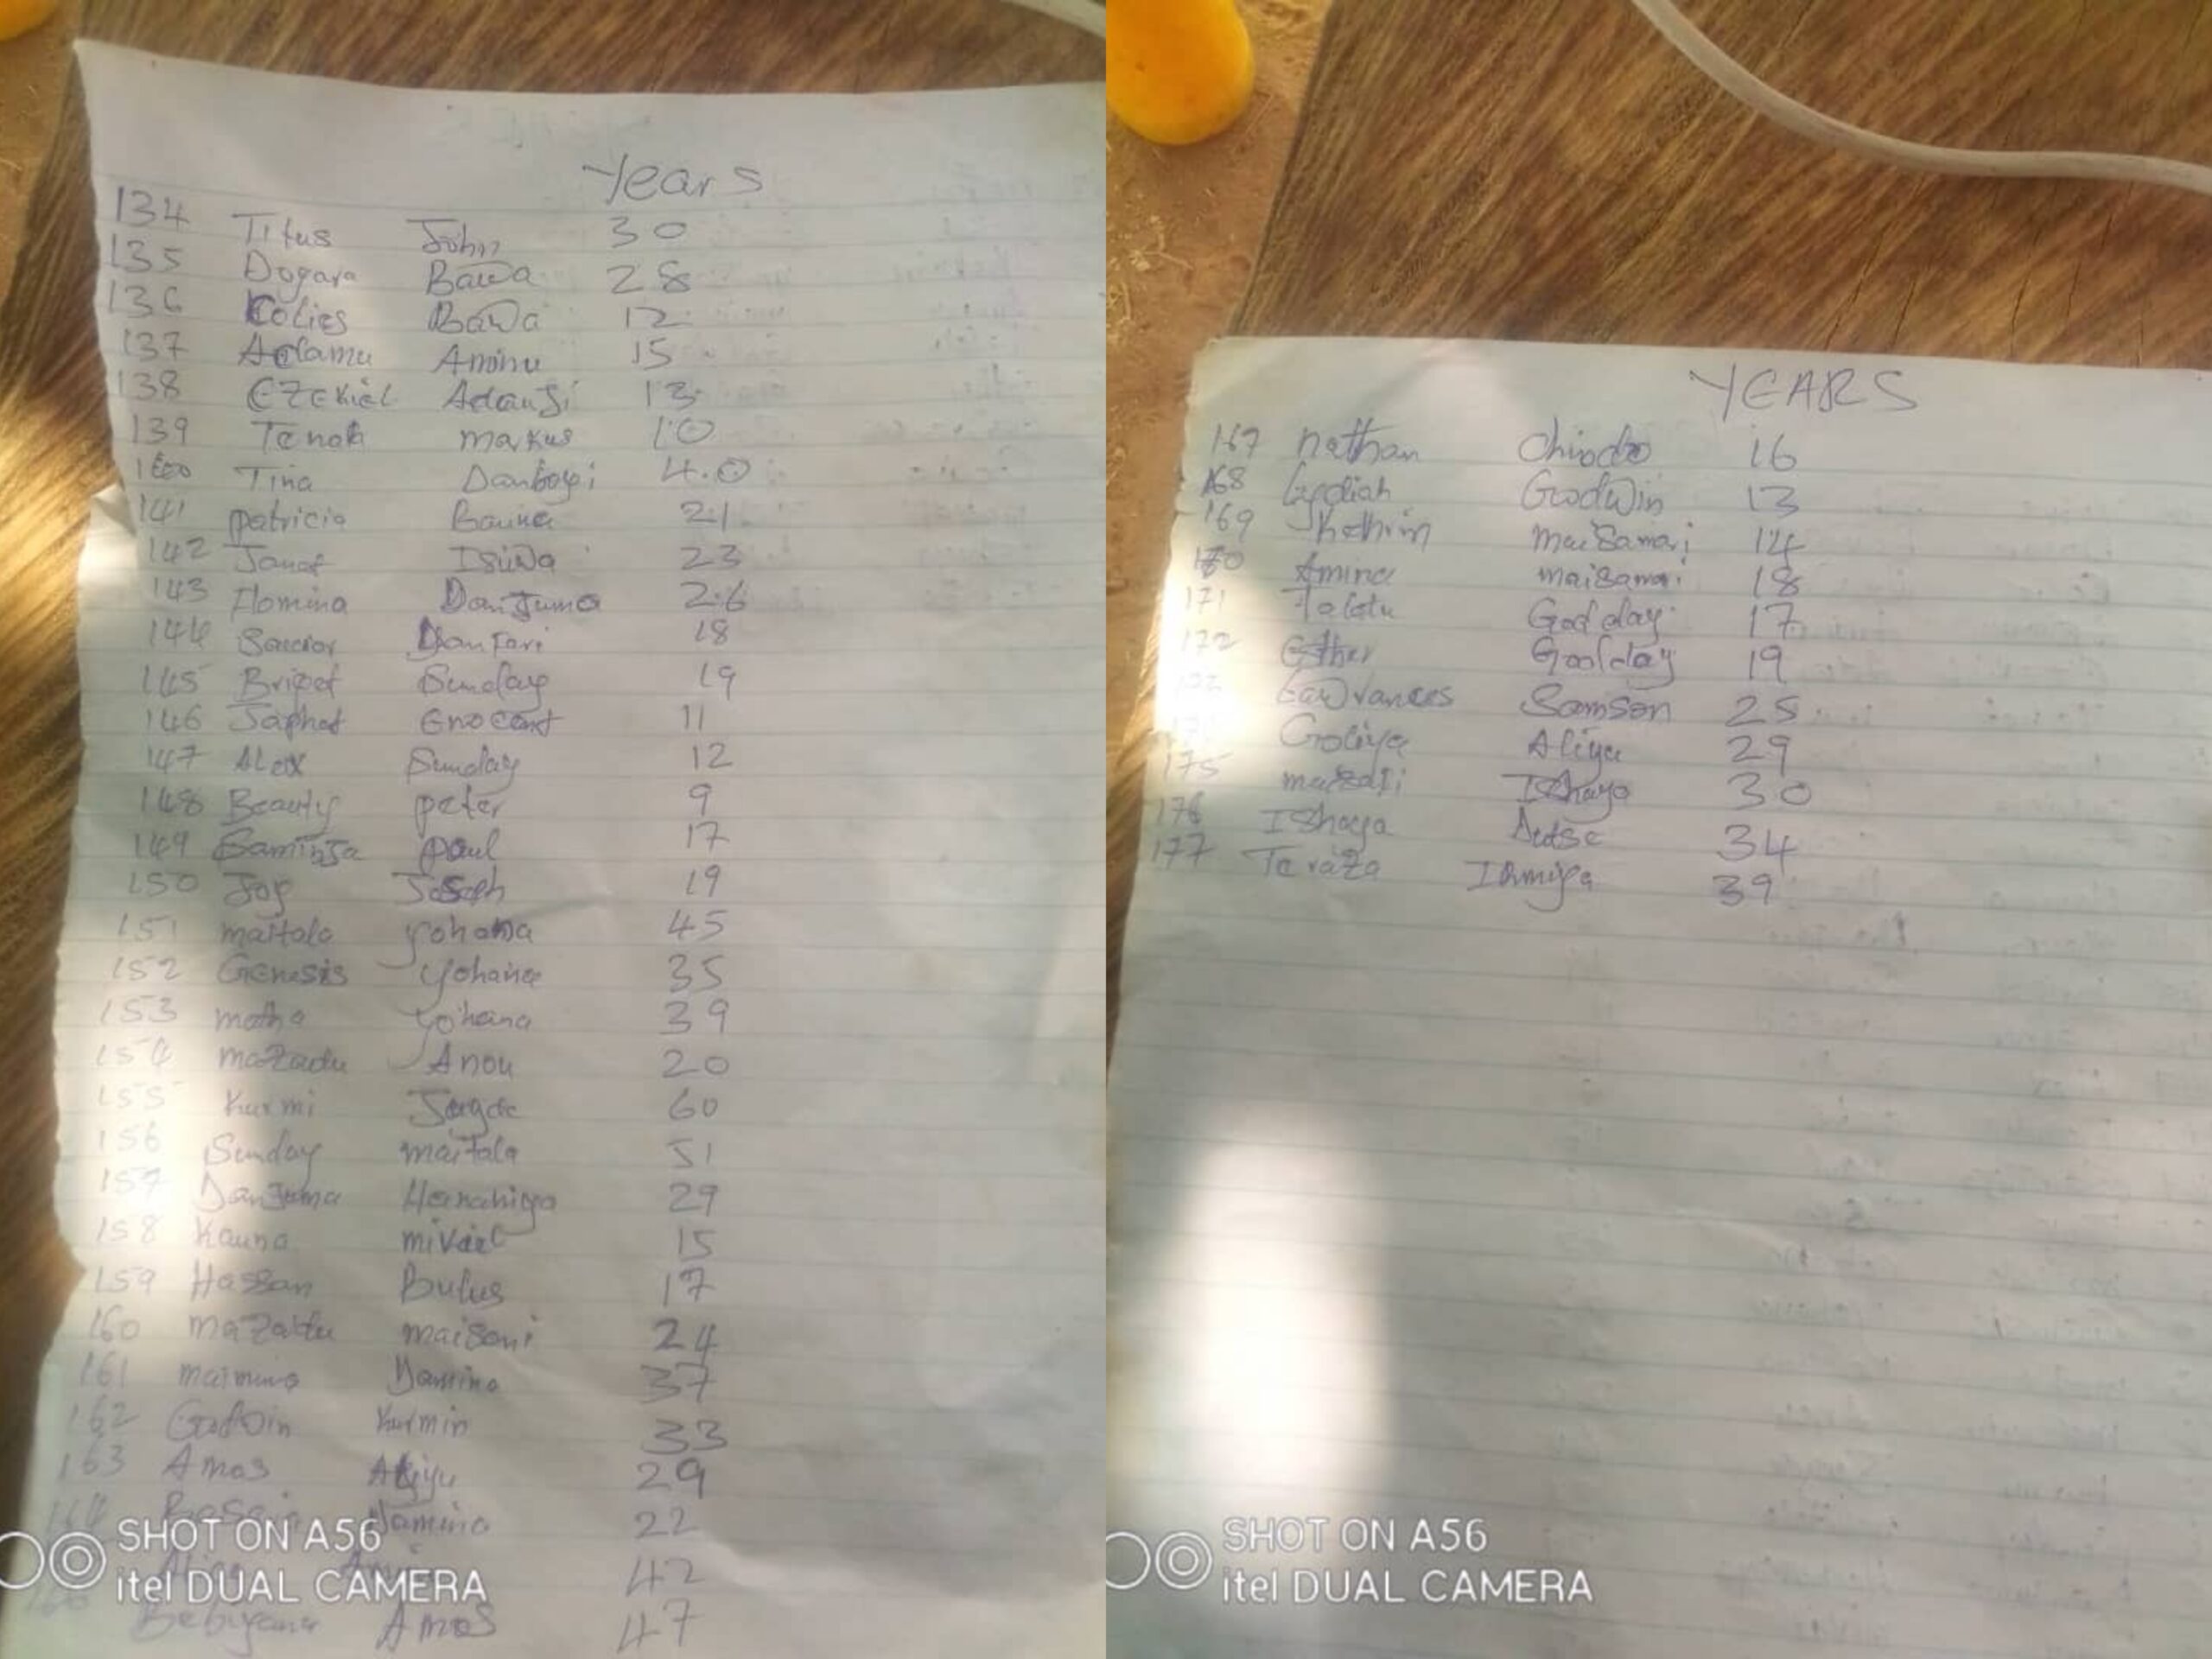 Years
134 Titus John 30
135 Dogara Bawa 28
136 Colies Bawa 12
137 Adamu Aminu 15
138 Ezekiel Adanji 13
139 Tenoh markus 10
Tina Danboyi 40
141 patricia Bauna 21
142 Janet Isuwa 23
143 Ilomina DanJuma 26
144 DanJari 18
145 Bripet Sunday 19
146 Japhet Enocent 11
147 Alex Sunday 12
148 Beauty peter 9
149 paul 17
150 Joy Joseph 19
151 maitala yohana 45
152 Genesis yohana 35
153 matha yohana 39
154 mazadu Anou 20
155 Kurmi 60
156 Sunday maitala 51
157 DanJuma Hanahiya 29
158 Kauna 15
159 Hassan Bulus 17
160 maisani 24
161 maimuna Damina 37
162 Godwin Kurmin 33
163 Amos Aliyu 29
164 Damina 22
42
Amos 47
SHOT ON A56
itel DUAL CAMERA
YEARS
167 nathan Chindo 16
168 Lydiah Godwin 13
169 Kathrin maisamari 14
170 Amina maisamari 18
171 Talatu Godday 17
172 Esther Godday 19
Lawrances Samson 25
Goliya Aliyu 29
175 Ishaya 30
176 Ishaya Autse 34
177 Teraza Irmiya 39
SHOT ON A56
itel DUAL CAMERA